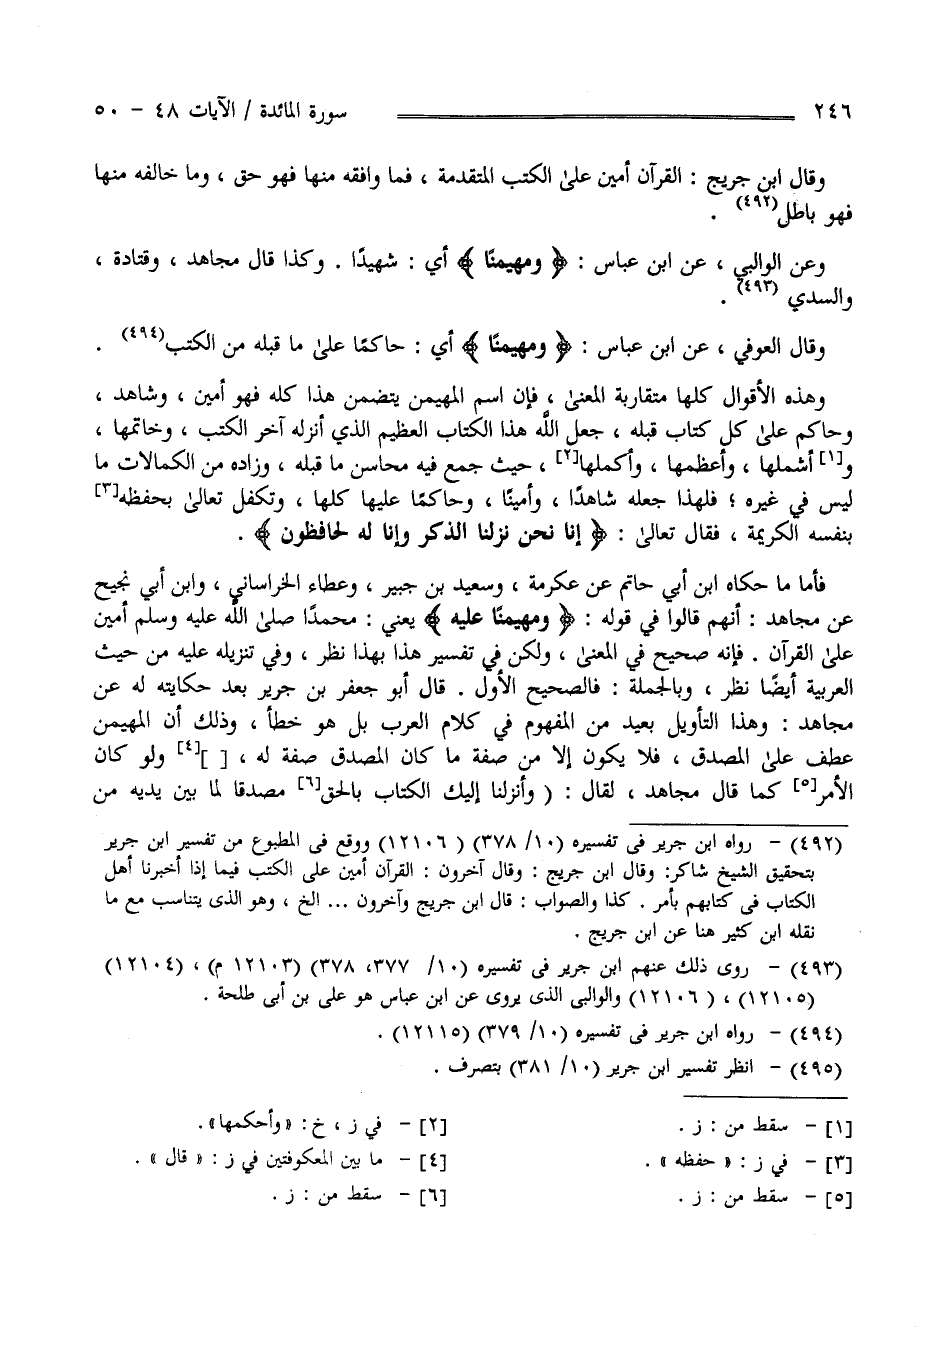 ٢٤٦ سورة المائدة / الآيات ٤٨ - ٥٠
وقال ابن جريج : القرآن أمين علىٰ الكتب المتقدمة ، فما وافقه منها فهو حق ، وما خالفه منها
فهو باطل(٤٩٢) .
وعن الوالبي ، عن ابن عباس : ﴿ ومهيمنًا ﴾ أي : شهيدًا . وكذا قال مجاهد ، وقتادة ،
والسدي (٤٩٣) .
وقال العوفي ، عن ابن عباس : ﴿ ومهيمنًا ﴾ أي : حاكمًا علىٰ ما قبله من الكتب(٤٩٤) .
وهذه الأقوال كلها متقاربة المعنىٰ ، فإن اسم المهيمن يتضمن هذا كله فهو أمين ، وشاهد ،
وحاكم علىٰ كل كتاب قبله ، جعل اللَّه هذا الكتاب العظيم الذي أنزله آخر الكتب ، وخاتمها ،
و[١] أشملها ، وأعظمها ، وأكملها[٢] ، حيث جمع فيه محاسن ما قبله ، وزاده من الكمالات ما
ليس في غيره ؛ فلهذا جعله شاهدًا ، وأمينًا ، وحاكمًا عليها كلها ، وتكفل تعالىٰ بحفظه[٣]
بنفسه الكريمة ، فقال تعالىٰ : ﴿ إنا نحن نزلنا الذكر وإنا له لحافظون ﴾ .
فأما ما حكاه ابن أبي حاتم عن عكرمة ، وسعيد بن جبير ، وعطاء الخراساني ، وابن أبي نجيح
عن مجاهد : أنهم قالوا في قوله : ﴿ ومهيمنًا عليه ﴾ يعني : محمدًا صلىٰ اللَّه عليه وسلم أمين
علىٰ القرآن . فإنه صحيح في المعنىٰ ، ولكن في تفسير هذا بهذا نظر ، وفي تنزيله عليه من حيث
العربية أيضًا نظر ، وبالجملة : فالصحيح الأول . قال أبو جعفر بن جرير بعد حكايته له عن
مجاهد : وهذا التأويل بعيد من المفهوم في كلام العرب بل هو خطأ ، وذلك أن المهيمن
عطف علىٰ المصدق ، فلا يكون إلا من صفة ما كان المصدق صفة له ، [ ][٤] ولو كان
الأمر[٥] كما قال مجاهد ، لقال : ( وأنزلنا إليك الكتاب بالحق[٦] مصدقا لما بين يديه من
(٤٩٢) - رواه ابن جرير فى تفسيره (١٠/ ٣٧٨) ( ١٢١٠٦) ووقع فى المطبوع من تفسير ابن جرير
بتحقيق الشيخ شاكر: وقال ابن جريج : وقال آخرون : القرآن أمين على الكتب فيما إذا أخبرنا أهل
الكتاب فى كتابهم بأمر . كذا والصواب : قال ابن جريج وآخرون ... الخ ، وهو الذى يتناسب مع ما
نقله ابن كثير هنا عن ابن جريج .
(٤٩٣) - روى ذلك عنهم ابن جرير فى تفسيره (١٠/ ٣٧٧، ٣٧٨) (١٢١٠٣ م) ، (١٢١٠٤)
(١٢١٠٥) ، ( ١٢١٠٦) والوالبى الذى يروى عن ابن عباس هو على بن أبى طلحة .
(٤٩٤) - رواه ابن جرير فى تفسيره (١٠/ ٣٧٩) (١٢١١٥) .
(٤٩٥) - انظر تفسير ابن جرير (١٠/ ٣٨١) بتصرف .
[١] - سقط من : ز .
[٢] - في ز ، خ : «وأحكمها».
[٣] - في ز : « حفظه » .
[٤] - ما بين المعكوفتين في ز : « قال » .
[٥] - سقط من : ز .
[٦] - سقط من : ز .